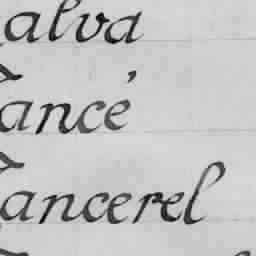 alva
ancé
ancerel